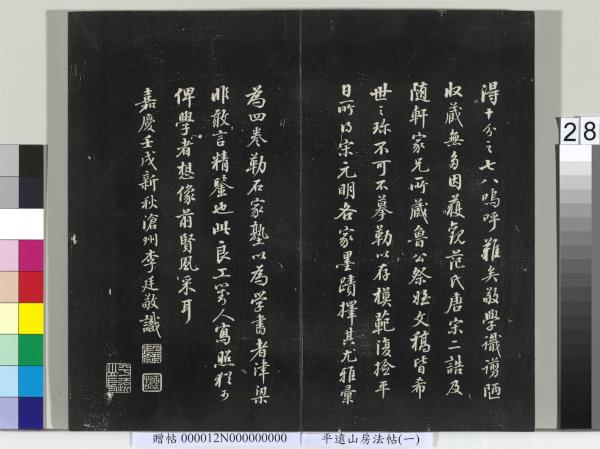 得十分之七八嗚呼難矣敬學識謭陋
収藏無多因獲觀范氏唐宋二誥及
随軒家兄所藏魯公祭姪文橅皆希
世之珎不可不摹勒以存模範復撿平
日所得宋元明各家墨蹟擇其尤雅彙
為四卷勒石家塾以為学書者津梁
非敢言精鑒也此良工為人寫照猶可
俾學者想像前賢風采耳
嘉慶壬戌新秋滄州李廷敬識
28
贈帖 000012N000000000 平遠山房法帖(一)